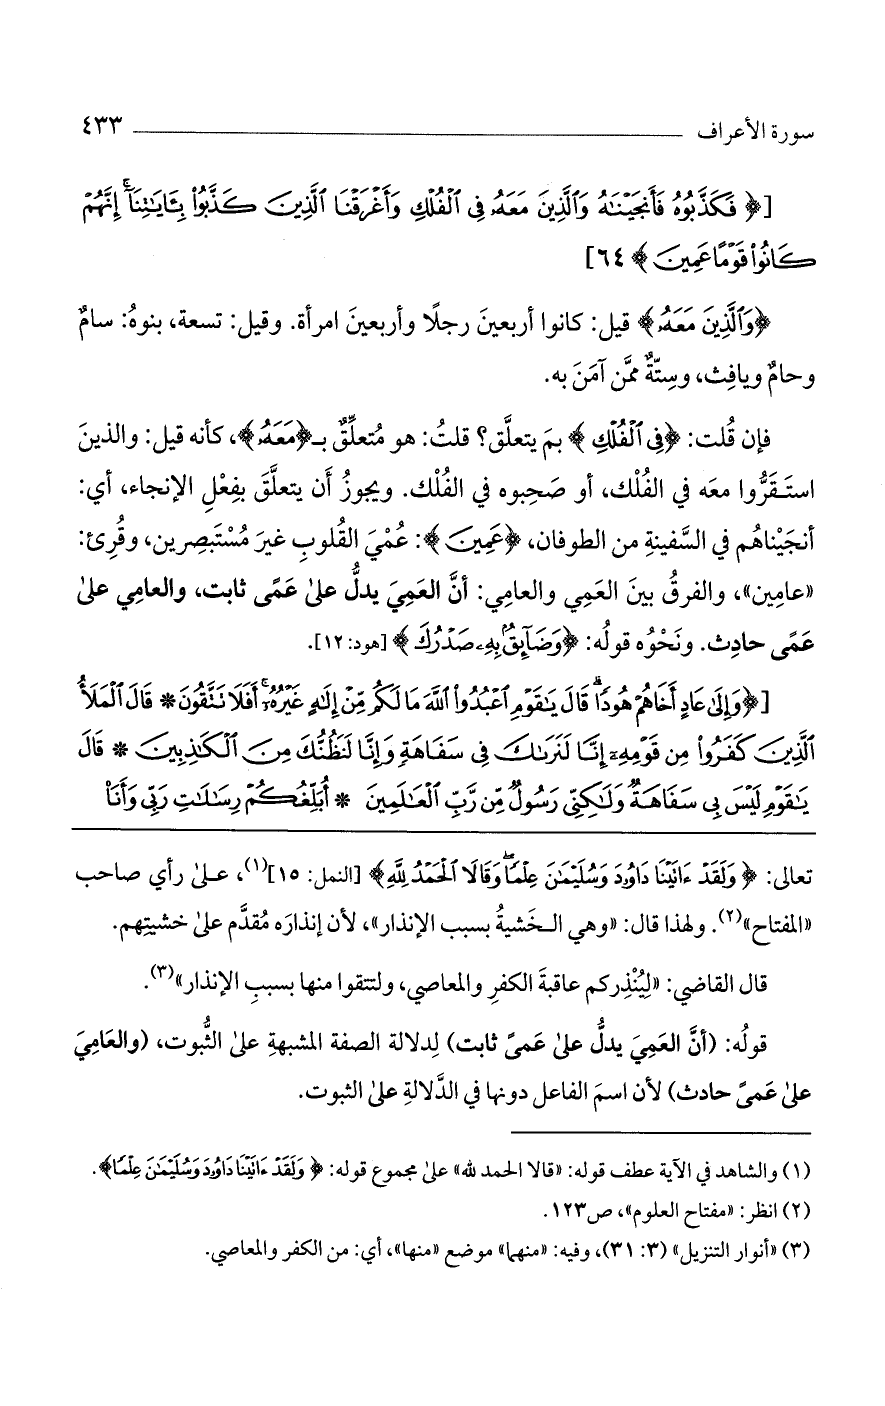 سورة الأعراف ٤٣٣
[﴿ فَكَذَّبُوهُ فَأَنجَيْنَٰهُ وَٱلَّذِينَ مَعَهُۥ فِى ٱلْفُلْكِ وَأَغْرَقْنَا ٱلَّذِينَ كَذَّبُوا۟ بِـَٔايَٰتِنَآ ۚ إِنَّهُمْ
كَانُوا۟ قَوْمًا عَمِينَ ﴾ ٦٤]
﴿وَٱلَّذِينَ مَعَهُۥ﴾ قيل: كانوا أربعينَ رجلًا وأربعينَ امرأة. وقيل: تسعة، بنوهُ: سامٌ
وحامٌ ويافِث، وسِتّةٌ ممَّن آمَنَ به.
فإن قُلت: ﴿فِى ٱلْفُلْكِ ﴾ بمَ يتعلَّق؟ قلتُ: هو مُتعلِّقٌ بـ﴿مَعَهُۥ﴾، كأنه قيل: والذينَ
استَـقَرُّوا معَه في الفُلْك، أو صَحِبوه في الفُلْك. ويجوزُ أن يتعلَّقَ بفِعْلِ الإنجاء، أي:
أنجَيْناهُم في السَّفينةِ من الطوفان، ﴿عَمِينَ ﴾: عُمْيَ القُلوبِ غيرَ مُسْتَبصِرين، وقُرِئ:
«عامِين»، والفرقُ بينَ العَمِي والعامِي: أنَّ العَمِيَ يدلُّ علىٰ عَمًى ثابت، والعامِي علىٰ
عَمًى حادِث. ونَحْوُه قولُه: ﴿وَضَآئِقٌۢ بِهِۦ صَدْرُكَ ﴾ [هود: ١٢].
[﴿وَإِلَىٰ عَادٍ أَخَاهُمْ هُودًا ۗ قَالَ يَٰقَوْمِ ٱعْبُدُوا۟ ٱللَّهَ مَا لَكُم مِّنْ إِلَٰهٍ غَيْرُهُۥٓ ۚ أَفَلَا نَتَّقُونَ * قَالَ ٱلْمَلَأُ
ٱلَّذِينَ كَفَرُوا۟ مِن قَوْمِهِۦٓ إِنَّا لَنَرَىٰكَ فِى سَفَاهَةٍ وَإِنَّا لَنَظُنُّكَ مِنَ ٱلْكَٰذِبِينَ * قَالَ
يَٰقَوْمِ لَيْسَ بِى سَفَاهَةٌ وَلَٰكِنِّى رَسُولٌ مِّن رَّبِّ ٱلْعَٰلَمِينَ * أُبَلِّغُكُمْ رِسَٰلَٰتِ رَبِّى وَأَنَا۠
تعالى: ﴿ وَلَقَدْ ءَاتَيْنَا دَاوُۥدَ وَسُلَيْمَٰنَ عِلْمًا ۖ وَقَالَا ٱلْحَمْدُ لِلَّهِ﴾ [النمل: ١٥](١)، علىٰ رأي صاحب
«المفتاح»(٢). ولهذا قال: «وهي الـخَشيةُ بسبب الإنذار»، لأن إنذارَه مُقدَّم علىٰ خشيتِهم.
قال القاضي: «لِيُنْذِركم عاقبةَ الكفرِ والمعاصي، ولتتقوا منها بسببِ الإنذار»(٣).
قولُه: (أنَّ العَمِيَ يدلُّ علىٰ عَمىً ثابت) لِدلالة الصفة المشبهةِ علىٰ الثُّبوت، (والعَامِيَ
علىٰ عَمىً حادث) لأن اسمَ الفاعل دونها في الدَّلالةِ علىٰ الثبوت.
(١) والشاهد في الآية عطف قوله: «قالا الحمد لله» علىٰ مجموع قوله: ﴿ وَلَقَدْ ءَاتَيْنَا دَاوُۥدَ وَسُلَيْمَٰنَ عِلْمًا﴾.
(٢) انظر: «مفتاح العلوم»، ص١٢٣.
(٣) «أنوار التنزيل» (٣: ٣١)، وفيه: «منهما» موضع «منها»، أي: من الكفر والمعاصي.